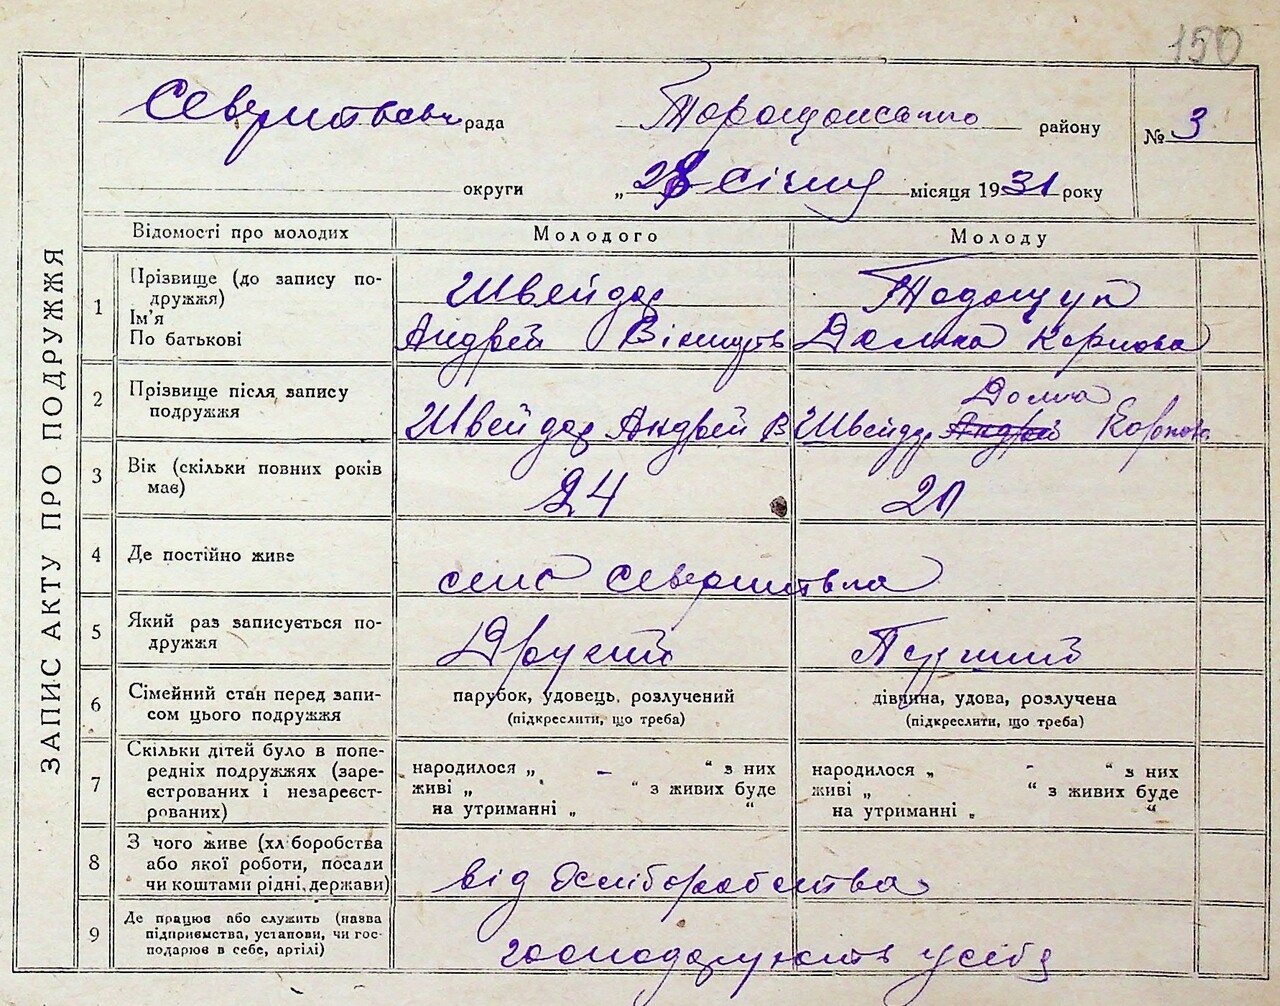 150
рада Таращанського району № 3
округи „28 січня місяця 1931 року
ЗАПИС АКТУ ПРО ПОДРУЖЖЯ
Відомості про молодих Молодого Молоду
1 Прізвище (до запису по-
дружжя)
Ім'я
По батькові
Швейдар
Андрей
Корпова
2 Прізвище після запису
подружжя
Швейдар Андрей В Швейдар Андрей Корпова
3 Вік (скільки повних років
має)
24 20
4 Де постійно живе
село
5 Який раз записується по-
дружжя
Другий Перший
6 Сімейний стан перед запи-
сом цього подружжя
парубок, удовець, розлучений
(підкреслити, що треба)
дівчина, удова, розлучена
(підкреслити, що треба)
7 Скільки дітей було в попе-
редніх подружжях (заре-
єстрованих і незареєст-
рованих)
народилося „ - “ з них
живі „ “ з живих буде
на утриманні „ “
народилося „ - “ з них
живі „ “ з живих буде
на утриманні „ “
8 З чого живе (хліборобства
або якої роботи, посади
чи коштами рідні, держави)
від хліборобства
9 Де працює або служить (назва
підприємства, установи, чи гос-
подарює в себе, артілі)
господарюють у себе